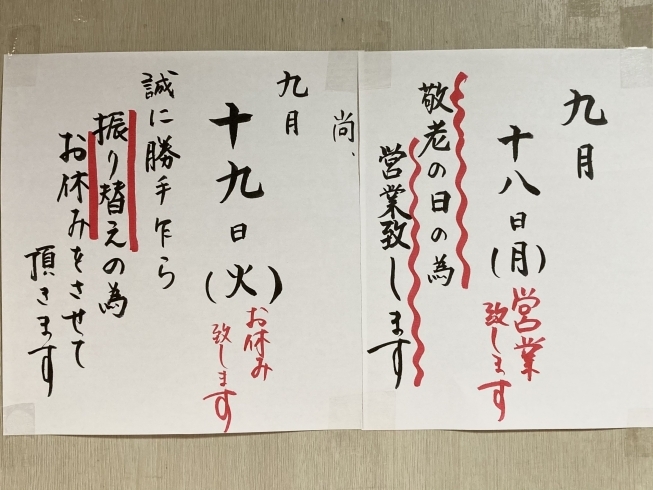 九月
十八日(月)
営業
致します
敬老の日の為
営業致します
尚、
九月
十九日(火)
お休み
致します
誠に勝手乍ら
振り替えの為
お休みをさせて
頂きます